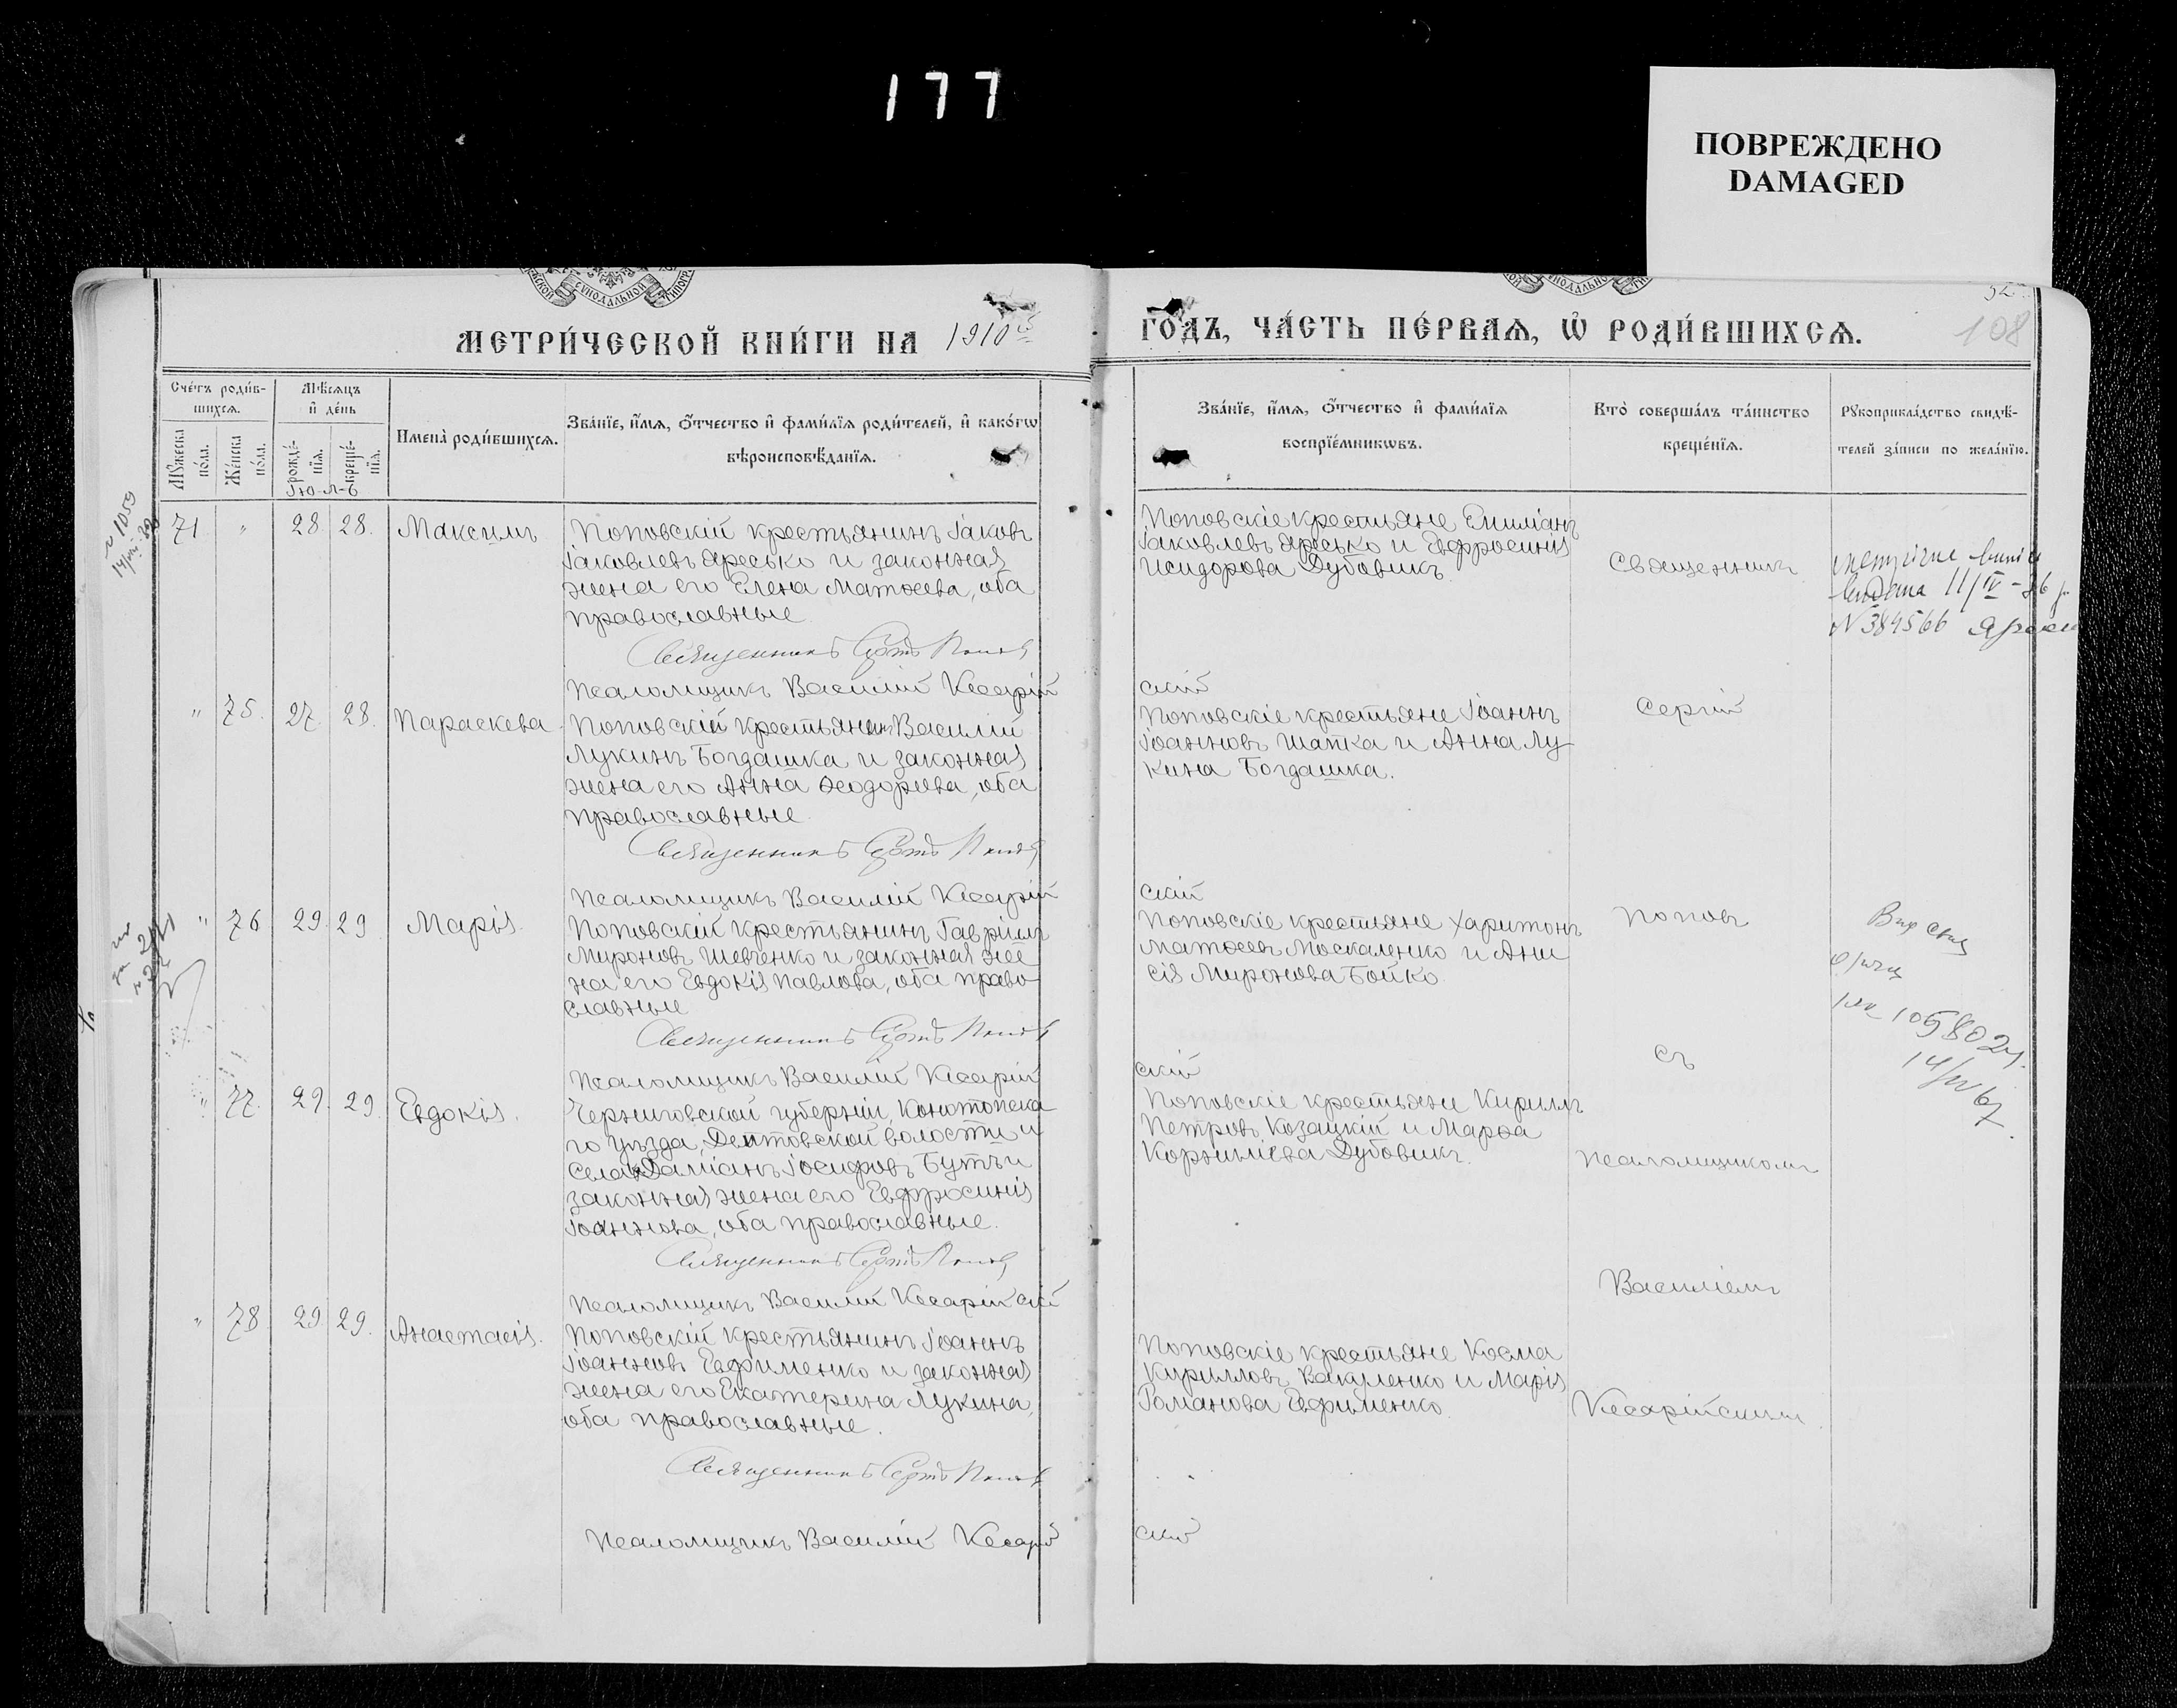 177
ПОВРЕЖДЕНО
DAMAGED
СѴНОДАЛЬНОЙ
52
108
МЕТРИ́ЧЕСКОЙ КНИ́ГИ НА 1910й
ГО́ДЪ, ЧА́СТЬ ПЕ́РВАѦ, Ѡ РОДИ́ВШИХСѦ.
Сче́тъ роди́в-
шихсѧ.
Мѣ́сѧцъ
и де́нь
Мꙋжеска по́ла.
Же́нска по́ла.
рожде́-нїѧ.
креще́-нїѧ.
Имена̀ роди́вшихсѧ.
Зва́нїе, и́мѧ, о́тчество и фами́лїѧ роди́телей, и како́гѡ
вѣроисповѣ́данїѧ.
Зва́нїе, и́мѧ, о́тчество и фами́лїѧ
воспрїе́мникѡвъ.
Кто̀ соверша́лъ та́инство
креще́нїѧ.
Рꙋкоприкла́дство свидѣ́-
телей за́писи по жела́нїю.
Ію-л-ь
71 " 28. 28. Максимъ
Поповскій крестьянинъ Іаковъ
Іаковлевъ Яресько и законная
жена его Елена Матѳеева, оба
православные
Священникъ Сергій Поповъ
Псаломщикъ Василій Кесарій
скій
Поповскіе крестьяне Емиліанъ
Іаковлевъ Яресько и Евфросинія
Исидорова Дубовикъ
Священникъ
видана 11/IV-
N 384566
" 75. 27. 28. Параскева
Поповскій крестьянинъ Василій
Лукинъ Богдашка и законная
жена его Анна Ѳеодорова, оба
православные
Священникъ Сергій Поповъ
Псаломщикъ Василій Кесарій
скій
Поповскіе крестьяне Іоаннъ
Іоанновъ Шапка и Анна Лу
кина Богдашка.
Сергій
" 76 29. 29 Марія.
Поповскій крестьянинъ Гавріилъ
Мироновъ Шевченко и законная же
на его Евдокія Павлова, оба право
славные
Священникъ Сергій Поповъ
Псаломщикъ Василій Кесарій
скій
Поповскіе крестьяне Харитонъ
Матѳеевъ Москаленко и Ани
сія Миронова Бойко.
Поповъ
" 77. 29. 29. Евдокія.
Черниговской губерніи, Конотопска
го уѣзда, Дептовской волости и
села Даміанъ Іосифовъ Бутъ и
законная жена его Евфросинія
Іоаннова, оба православные.
Священникъ Сергій Поповъ
Псаломщикъ Василій Кесарійскій
Поповскіе крестьяне Кириллъ
Петровъ Козацкій и Марѳа
Корниліева Дубовикъ.
съ
псаломщикомъ
Василіемъ
" 78 29. 29. Анастасія.
Поповскій крестьянинъ Іоаннъ
Іоанновъ Евфименко и законная
жена его Екатерина Лукина,
оба православные.
Священникъ Сергій Поповъ
Псаломщикъ Василій Кесарій
скій
Поповскіе крестьяне Косма
Кирилловъ Вакуленко и Марія
Романова Евфименко
Кесарійскимъ